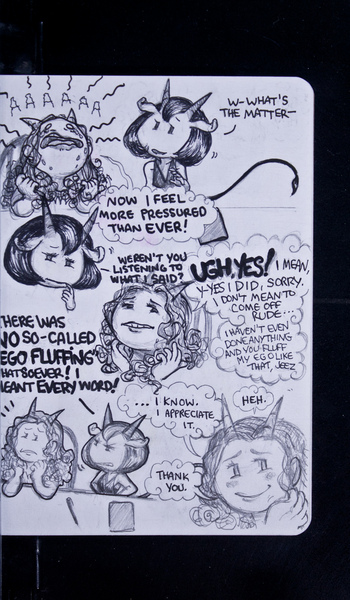 AAAAAA
W-WHAT'S
THE MATTER-
NOW I FEEL
MORE PRESSURED
THAN EVER!
WEREN'T YOU
LISTENING TO
WHAT I SAID?
UGH, YES! I MEAN,
Y-YES I DID, SORRY.
I DON'T MEAN TO
COME OFF
RUDE...
I HAVEN'T EVEN
DONE ANYTHING
AND YOU FLUFF
MY EGO LIKE
THAT, JEEZ
HERE WAS
NO SO-CALLED
EGO FLUFFING"
HATSOEVER! I
EANT EVERY WORD!
... I KNOW.
I APPRECIATE
IT.
HEH.
THANK
YOU.